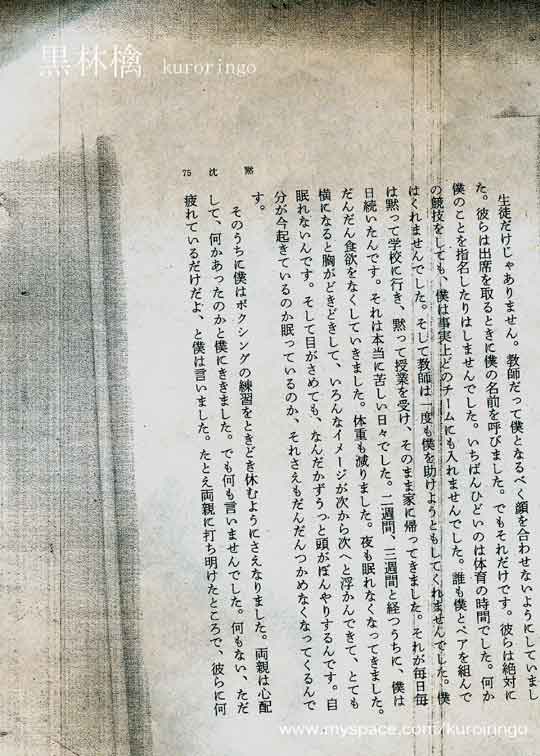 黒林檎 kuroringo
75 沈黙
生徒だけじゃありません。教師だって僕となるべく顔を合わせないようにしていまし
た。彼らは出席を取るときに僕の名前を呼びました。でもそれだけです。彼らは絶対に
僕のことを指名したりはしませんでした。いちばんひどいのは体育の時間でした。何か
の競技をしても、僕は事実上どのチームにも入れませんでした。誰も僕とペアを組んで
はくれませんでした。そして教師は一度も僕を助けようともしてくれませんでした。僕
は黙って学校に行き、黙って授業を受け、そのまま家に帰ってきました。それが毎日毎
日続いたんです。それは本当に苦しい日々でした。二週間、三週間と経つうちに、僕は
だんだん食欲をなくしていきました。体重も減りました。夜も眠れなくなってきました。
横になると胸がどきどきして、いろんなイメージが次から次へと浮かんできて、とても
眠れないんです。そして目がさめても、なんだかずうっと頭がぼんやりするんです。自
分が今起きているのか眠っているのか、それさえもだんだんつかめなくなってくるんで
す。
そのうちに僕はボクシングの練習をときどき休むようにさえなりました。両親は心配
して、何かあったのかと僕にききました。でも何も言いませんでした。何もない、ただ
疲れているだけだよ、と僕は言いました。たとえ両親に打ち明けたところで、彼らに何
www.myspace.com/kuroiringo